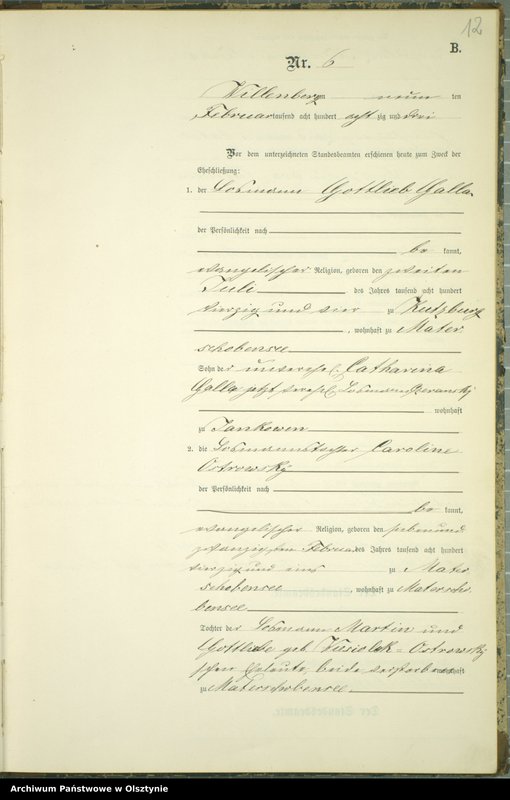 12
B.
Nr. 6
Willenberg am neun ten
Februar tausend acht hundert acht zig und drei
Vor dem unterzeichneten Standesbeamten erschienen heute zum Zweck der
Eheschließung:
1. der Losmann Gottlieb Galla
der Persönlichkeit nach
be kannt,
evangelischer Religion, geboren den zweiten
Juli des Jahres tausend acht hundert
vierzig und vier zu Kutzburg
, wohnhaft zu Mater
schobensee
Sohn der unverehel. Catharina
Galla jetzt verehel. Losmann
wohnhaft
zu Jankowen
2. die Losmannstochter Caroline
Ostrowsky
der Persönlichkeit nach
be kannt,
evangelischer Religion, geboren den sieben und
zwanzigsten Februar des Jahres tausend acht hundert
vierzig und eins zu Mater
schobensee, wohnhaft zu Materscho
bensee
Tochter der Losmann Martin und
Gottliebe geb. Wesiolek-Ostrowsky
schen Eheleute, beide verstorben wohnhaft
zu Materschobensee
Der Standesbeamte.
Archiwum Państwowe w Olsztynie